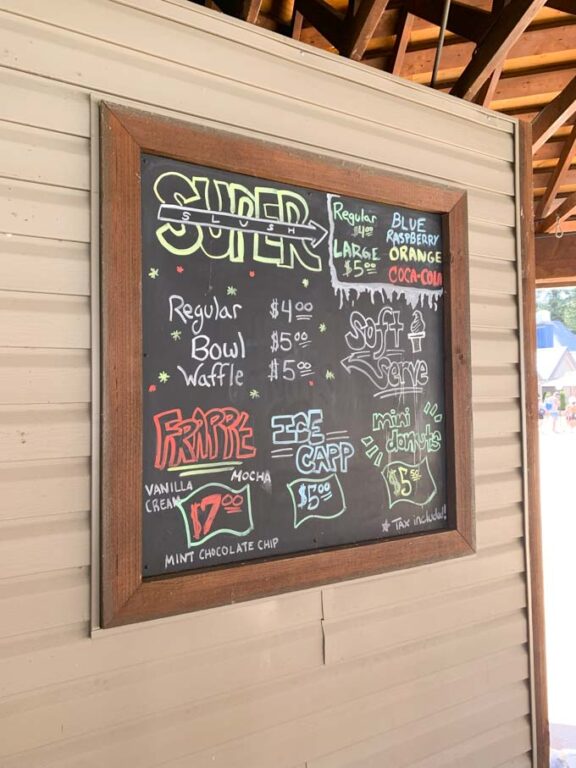 SUPER
SLUSH
Regular
$4.00
LARGE
$5.00
BLUE
RASPBERRY
ORANGE
COCA-COLA
Regular $4.00
Bowl $5.00
Waffle $5.00
Soft
Serve
FRAPPE
VANILLA
CREAM
MOCHA
$7.00
MINT CHOCOLATE CHIP
ICE
CAPP
$5.00
mini
donuts
$5.00
* Tax included!